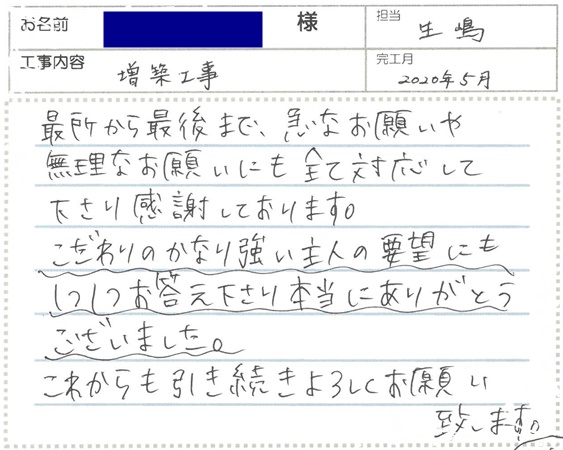 お名前 様 担当 生嶋
工事内容 増築工事 完工月 2020年5月
最所から最後まで、急なお願いや
無理なお願いにも全て対応して
下さり感謝しております。
こだわりのかなり強い主人の要望にも
1つ1つお答え下さり本当にありがとう
ございました。
これからも引き続きよろしくお願い
致します。